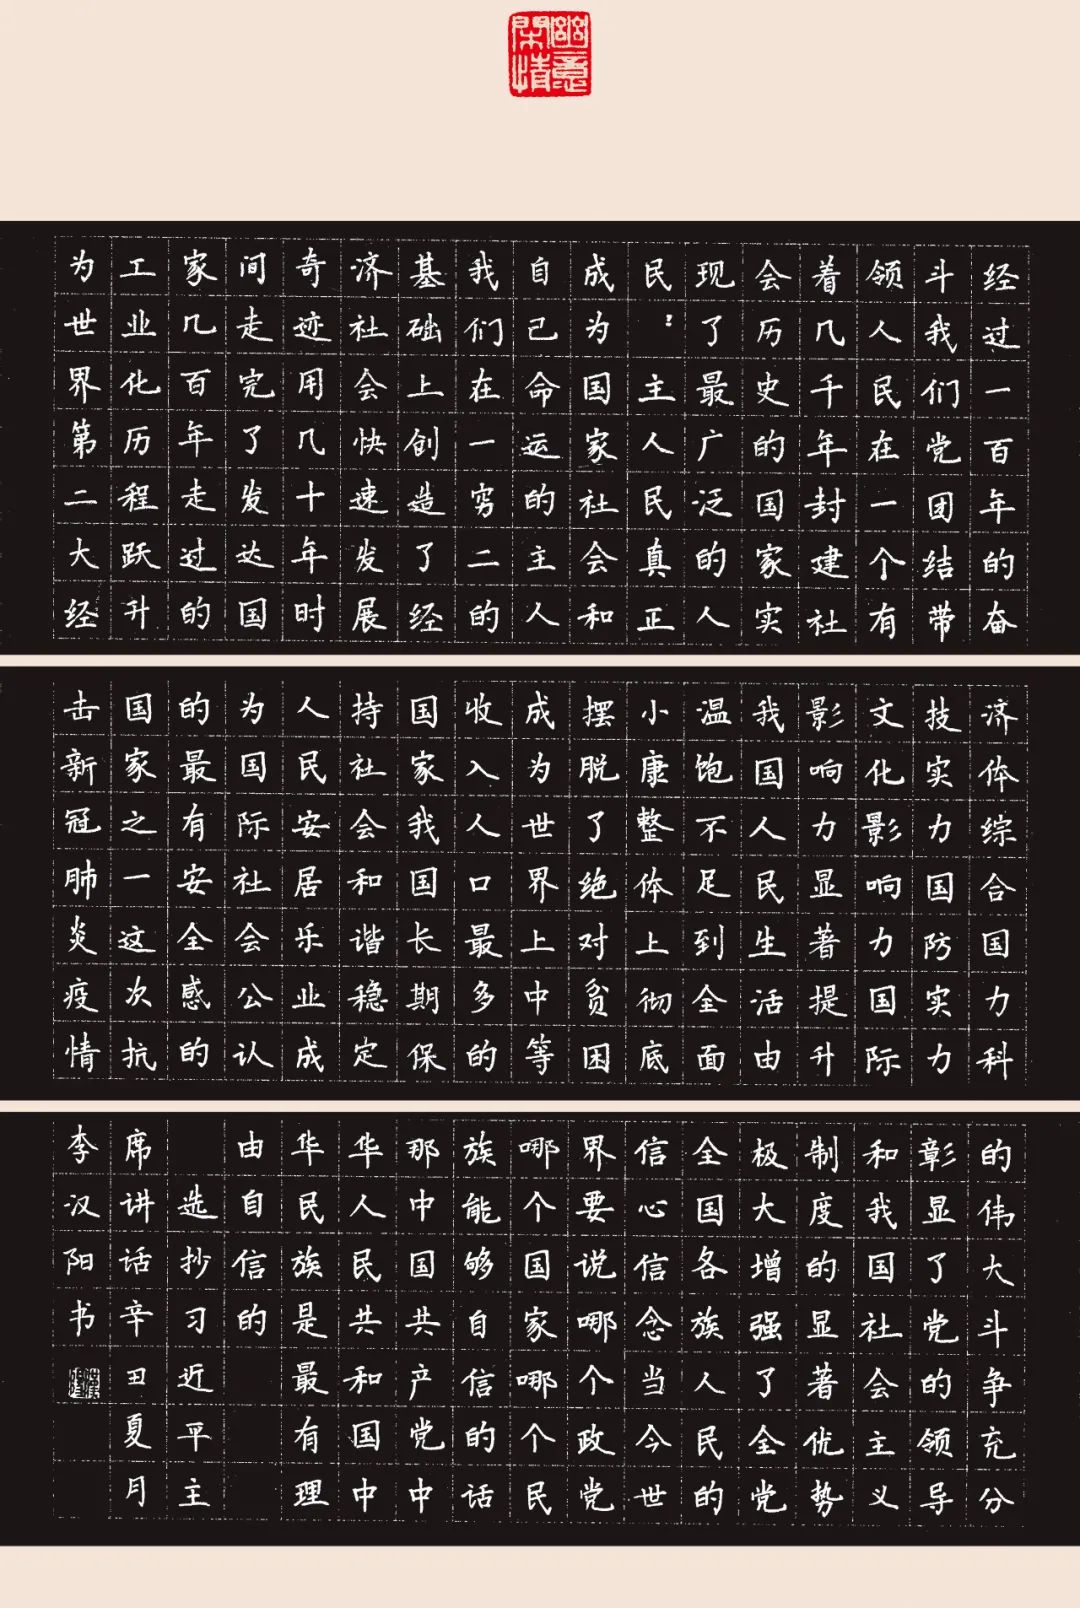 幽意
閑情
经过一百年的奋
斗我们党团结带
领人民在一个有
着几千年封建社
会历史的国家实
现了最广泛的人
民：主人民真正
成为国家社会和
自己命运的主人
我们在一穷二的
基础上创造了经
济社会快速发展
奇迹用几十年时
间走完了发达国
家几百年走过的
工业化历程跃升
为世界第二大经
济体综合国力科
技实力国防实力
文化影响力国际
影响力显著提升
我国人民生活由
温饱不足到全面
小康整体上彻底
摆脱了绝对贫困
成为世界上中等
收入人口最多的
国家我国长期保
持社会和谐稳定
人民安居乐业成
为国际社会公认
的最有安全感的
国家之一这次抗
击新冠肺炎疫情
的伟大斗争充分
彰显了党的领导
和我国社会主义
制度的显著优势
极大增强了全党
全国各族人民的
信心信念当今世
界要说哪个政党
哪个国家哪个民
族能够自信的话
那中国共产党中
华人民共和国中
华民族是最有理
由自信的
选抄习近平主
席讲话辛丑夏月
李汉阳书